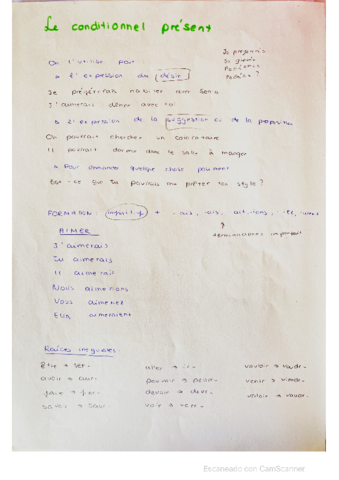 Le conditionnel présent
On l'utilise pour:
l'expression du désir
Je préférerais habiter aux
J'aimerais dîner avec toi
l'expression de la suggestion ou de la proposition
On pourrait chercher un colocataire
Il pourrait dormir dans le salle à manger
Pour demander quelque chose poliment
Est-ce que tu pourrais me prêter ton stylo?
FORMATION: infinitif + -ais, -ais, -ait, -ions, -iez, -aient
terminaisons imparfait
AIMER
J'aimerais
Tu aimerais
Il aimerait
Nous aimerions
Vous aimeriez
Elles aimeraient
Raíces irregulares:
être → ser- aller → ir-
avoir → aur- pouvoir → pourr-
faire → fer- devoir → devr- venir → viendr-
savoir → saur- voir → verr-
Escaneado con CamScanner